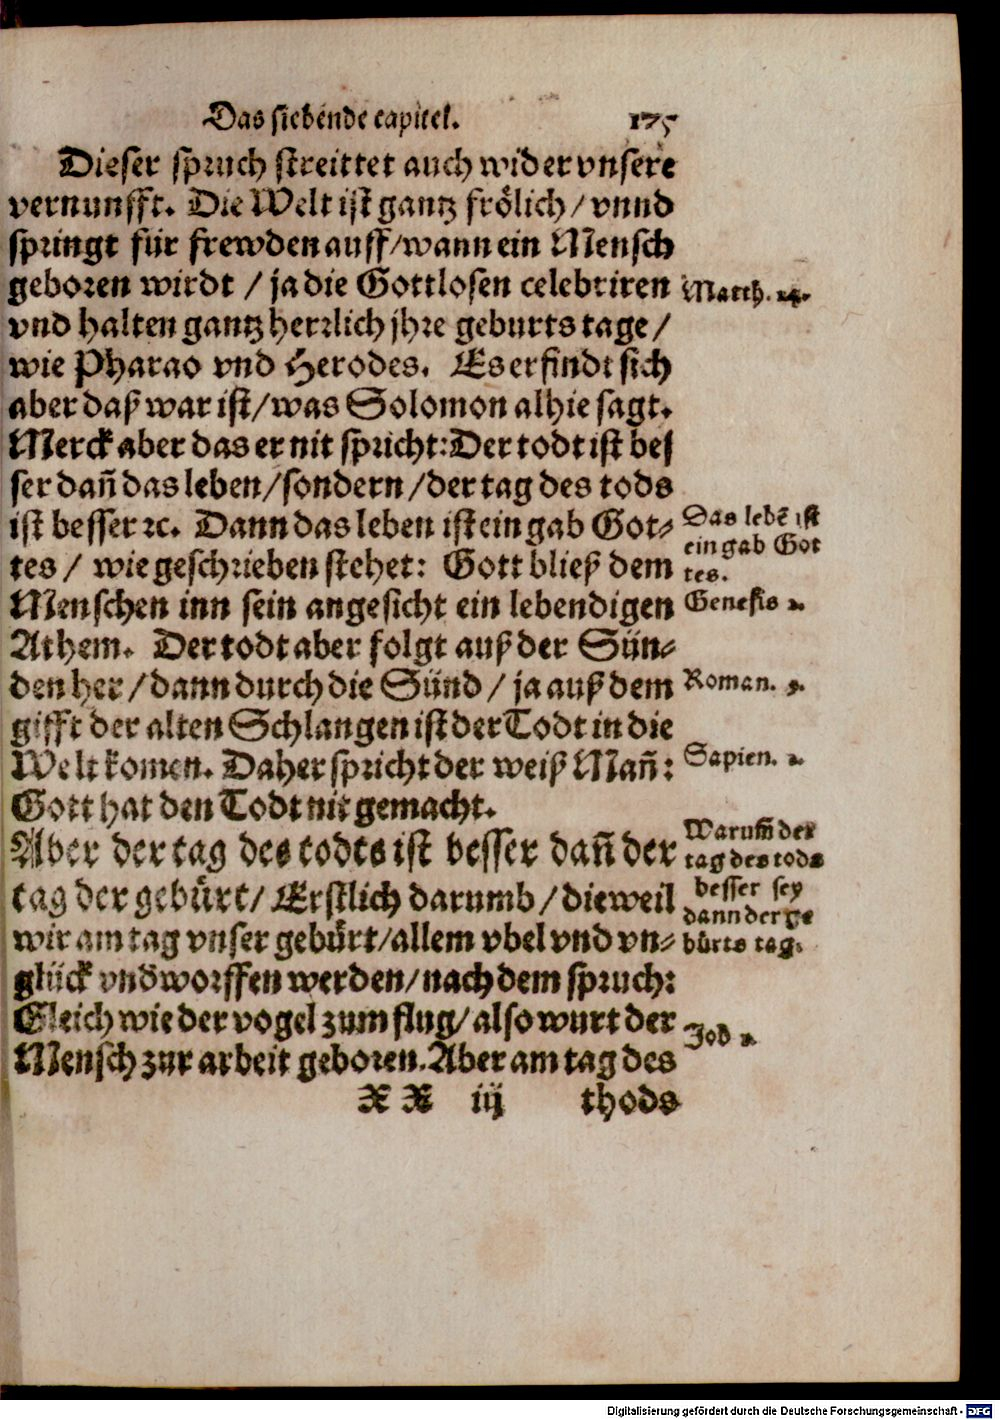 Das siebende capitel. 175
Dieser spruch streittet auch wider vnsere
vernunfft. Die Welt ist gantz frölich / vnnd
springt für frewden auff / wann ein Mensch
geboren wirdt / ja die Gottlosen celebriren
Matth. 14.
vnd halten gantz herrlich jhre geburts tage /
wie Pharao vnd Herodes. Es erfindt sich
aber daß war ist / was Solomon alhie sagt.
Merck aber das er nit spricht: Der todt ist bes
ser dañ das leben / sondern / der tag des tods
ist besser ꝛc. Dann das leben ist ein gab Got⸗
Das lebē ist
ein gab Got
tes.
tes / wie geschrieben stehet: Gott bließ dem
Menschen inn sein angesicht ein lebendigen
Genesis 2.
Athem. Der todt aber folgt auß der Sün⸗
den her / dann durch die Sünd / ja auß dem
Roman. 5.
gifft der alten Schlangen ist der Todt in die
Welt komen. Daher spricht der weiß Mañ:
Sapien. 2.
Gott hat den Todt nit gemacht.
Aber der tag des todts ist besser dañ der
Warum̃ der
tag des tods
besser sey
dann der ge
bürts tag.
tag der gebürt / Erstlich darumb / dieweil
wir am tag vnser gebürt / allem vbel vnd vn⸗
glück vndworffen werden / nach dem spruch:
Gleich wie der vogel zum flug / also wurt der
Job
Mensch zur arbeit geboren. Aber am tag des
X X iij thods
Digitalisierung gefördert durch die Deutsche Forschungsgemeinschaft - DFG